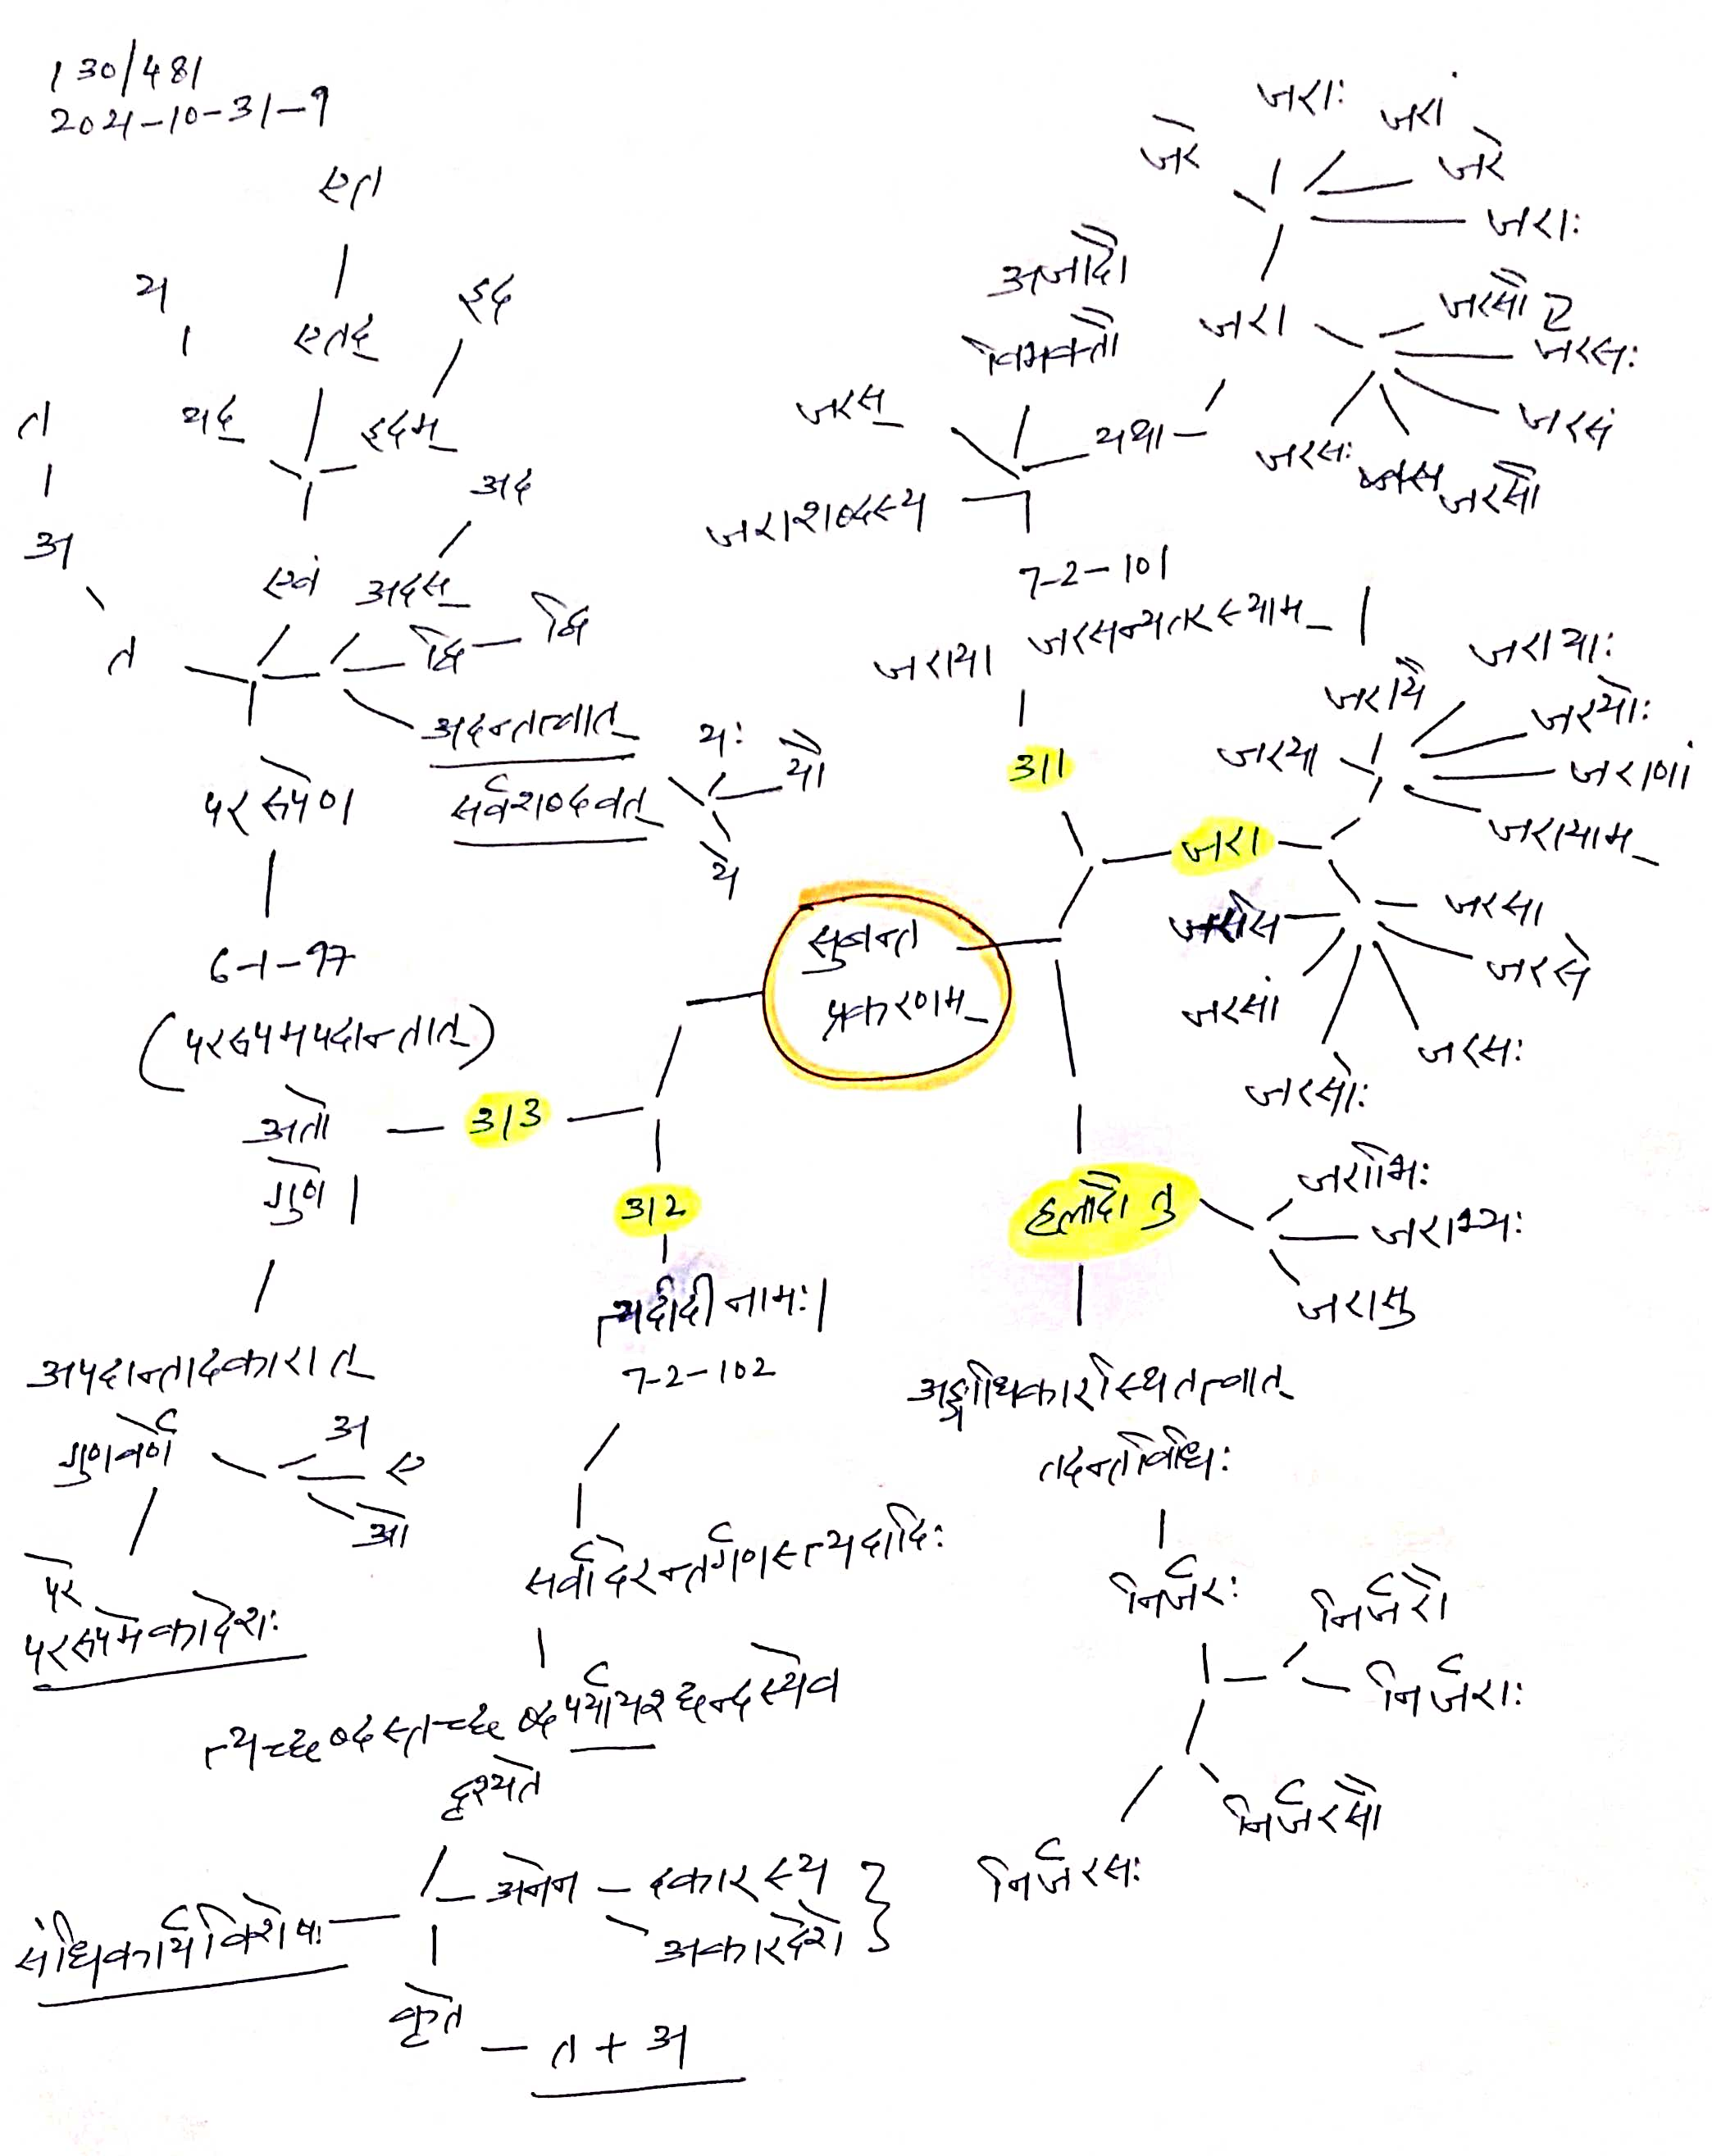 130/481
2021-10-31-9
एत
एतद्
य
यद्
इद
इदम्
त
अ
त
एवं
अद
अदस्
द्वि
द्वि
अदन्तत्वात्
सर्वशब्दवत्
यः
यौ
ये
पररूपेण
6-1-97
(पररूपमपदान्तात्)
अतो
गुणे।
313
अपदान्तादकारात्
गुणवर्णे
अ
ए
ओ
परे
पररूपमेकादेशः
सुबन्त
प्रकरणम्
312
त्यदादीनामः।
7-2-102
सर्वादेरन्तर्गणस्त्यदादिः
दृश्यते
अनेन
दकारस्य
अकारादेशे
संधिकार्यविशेषः
कृते
त + अ
जरे
जराः
जरां
जरे
जराः
जरा
जरसौ 2
जरसः
जरसं
जरसौ
जरसः
अजादौ
विभक्तौ
यथा
जरस्
जराशब्दस्य
7-2-101
जरसन्यतरस्याम्।
जराया
311
जरा
जरायै
जरायाः
जरयोः
जराणां
जरायाम्
जरया
जरसा
जरसे
जरसः
जरसोः
जरसां
हलादौ तु
जराभिः
जराभ्यः
जरासु
अङ्गाधिकारस्थितत्वात्
तदन्तविधिः
निर्जरः
निर्जरौ
निर्जराः
निर्जरसौ
निर्जरसः